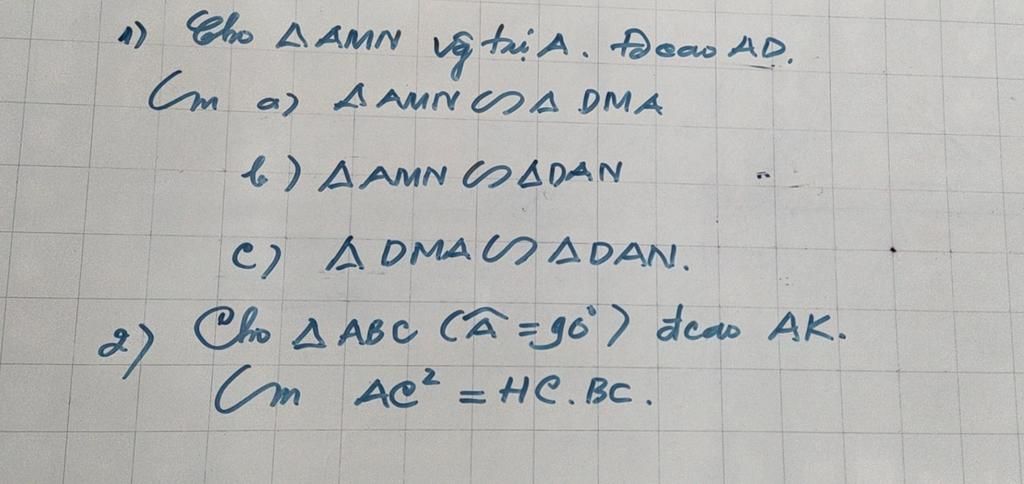 1) Cho Δ AMN vg tại A. Đcao AD.
Cm a) Δ AMN ∽ Δ DMA
b) Δ AMN ∽ Δ DAN
c) Δ DMA ∽ Δ DAN.
2) Cho Δ ABC (Â = 90°) đcao AK.
Cm AC² = HC. BC.